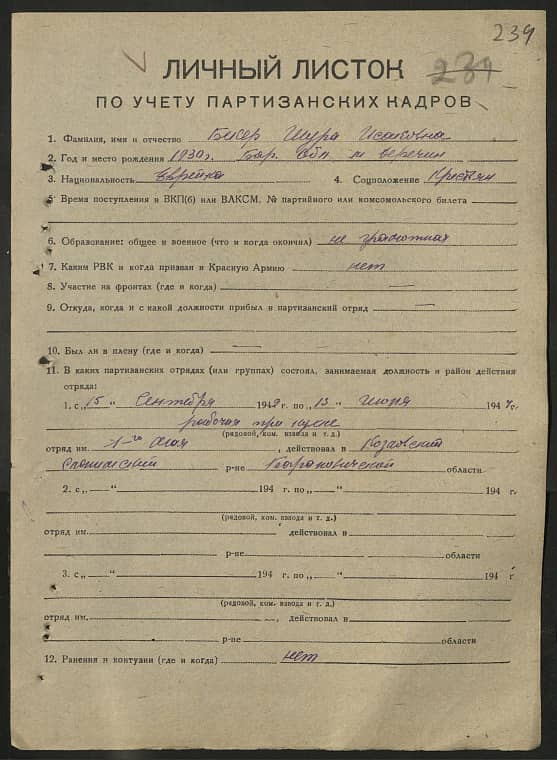 239
ЛИЧНЫЙ ЛИСТОК
ПО УЧЕТУ ПАРТИЗАНСКИХ КАДРОВ
1. Фамилия, имя и отчество Бекер Шура Исаковна
2. Год и место рождения 1930г. Бар. Обл. м
3. Национальность Еврейка 4. Соцположение
5. Время поступления в ВКП(б) или ВЛКСМ, № партийного или комсомольского билета
6. Образование: общее и военное (что и когда окончил) не грамотная
7. Каким РВК и когда призван в Красную Армию нет
8. Участие на фронтах (где и когда) —
9. Откуда, когда и с какой должности прибыл в партизанский отряд —
10. Был ли в плену (где и когда)
11. В каких партизанских отрядах (или группах) состоял, занимаемая должность и район действия
отряда:
1. с „15“ Сентября 1942 г. по „13“ июля 1944 г.
рабочая при кухне
(рядовой, ком. взвода и т. д.)
отряд им. 1-го Мая, действовал в
р-не Барановичской области
2. с „ “ 194 г. по „ “ 194 г.
(рядовой, ком. взвода и т. д.)
отряд им. действовал в
р-не области
3. с „ “ 194 г. по „ “ 194 г
(рядовой, ком. взвода и т. д.)
отряд им. , действовал в
р-не области
12. Ранения и контузии (где и когда) нет